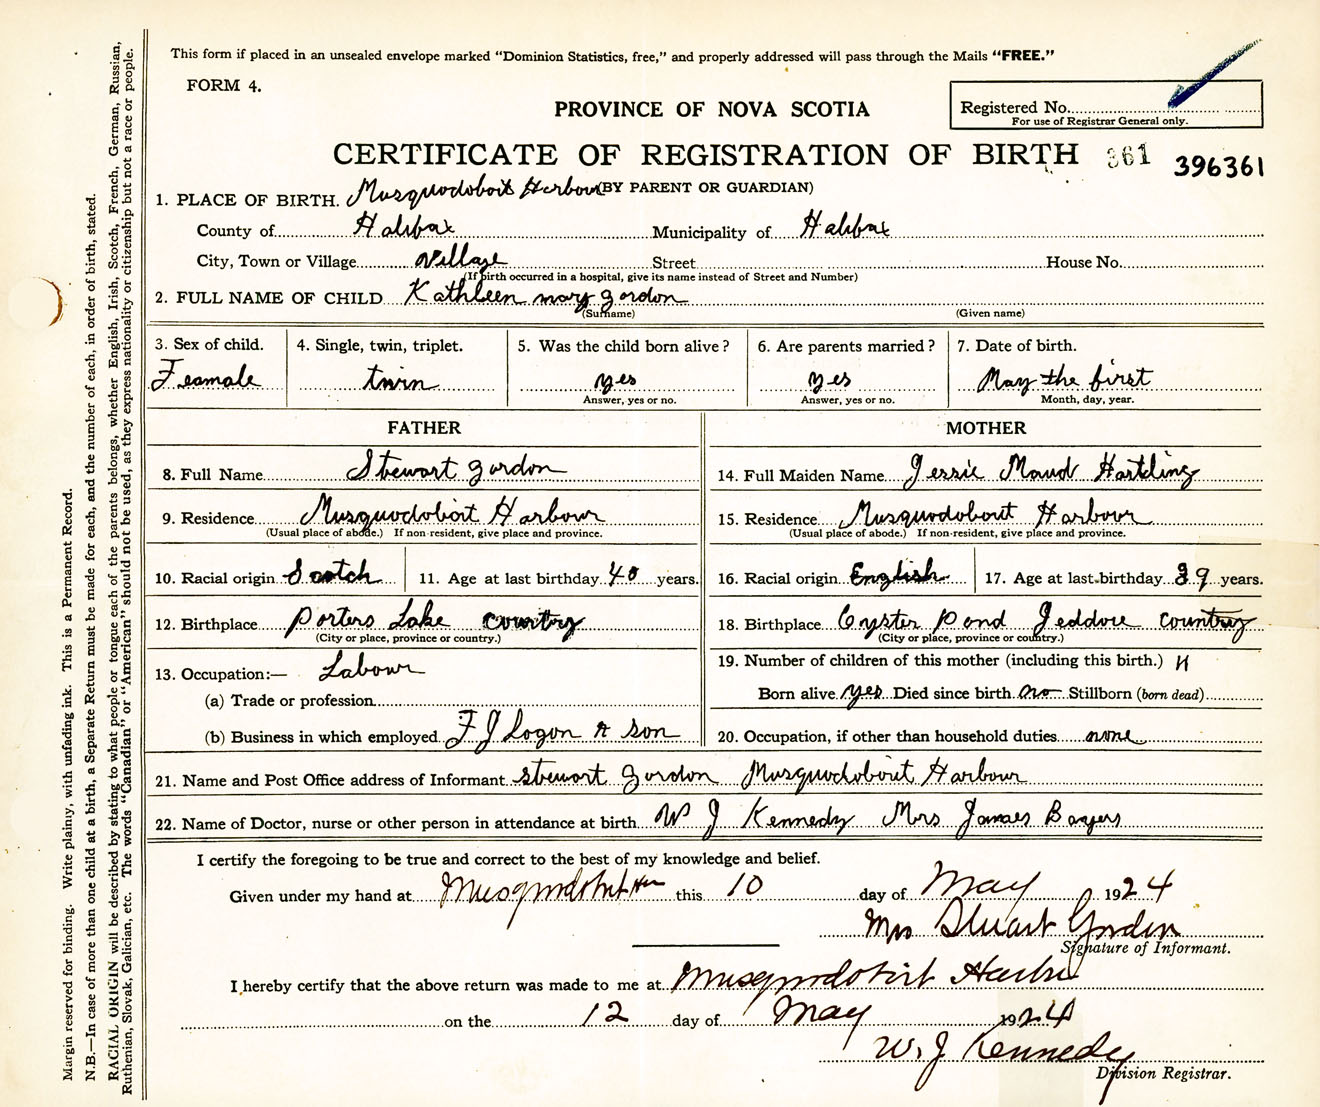 This form if placed in an unsealed envelope marked “Dominion Statistics, free,” and properly addressed will pass through the Mails “FREE.”
FORM 4.
PROVINCE OF NOVA SCOTIA
Registered No.
For use of Registrar General only.
CERTIFICATE OF REGISTRATION OF BIRTH 361 396361
(BY PARENT OR GUARDIAN)
1. PLACE OF BIRTH. Musquodoboit Harbour
County of Halifax Municipality of Halifax
City, Town or Village village Street House No.
(If birth occurred in a hospital, give its name instead of Street and Number)
2. FULL NAME OF CHILD Kathleen mary gordon
(Surname) (Given name)
3. Sex of child. 4. Single, twin, triplet. 5. Was the child born alive? 6. Are parents married? 7. Date of birth.
Feamale twin yes yes May the first
Answer, yes or no. Answer, yes or no. Month, day, year.
FATHER MOTHER
8. Full Name Stewart gordon 14. Full Maiden Name Jessie Maud Hartling
9. Residence Musquodoboit Harbour 15. Residence Musquodoboit Harbour
(Usual place of abode.) If non-resident, give place and province. (Usual place of abode.) If non-resident, give place and province.
10. Racial origin Scotch 11. Age at last birthday 40 years. 16. Racial origin English 17. Age at last birthday 39 years.
12. Birthplace Porters Lake country 18. Birthplace Oyster Pond Jeddore country
(City or place, province or country.) (City or place, province or country.)
13. Occupation:— Labour 19. Number of children of this mother (including this birth.)
(a) Trade or profession Born alive yes Died since birth no Stillborn (born dead)
(b) Business in which employed F J Logan & son 20. Occupation, if other than household duties none
21. Name and Post Office address of Informant stewart gordon Musquodoboit Harbour
22. Name of Doctor, nurse or other person in attendance at birth W J Kennedy Mrs James Bayers
I certify the foregoing to be true and correct to the best of my knowledge and belief.
Given under my hand at Musquodoboit Hbr this 10 day of May 1924
Mrs Stuart Gordon
Signature of Informant.
I hereby certify that the above return was made to me at Musquodoboit Harbor
on the 12 day of May 1924
W. J Kennedy
Division Registrar.
Margin reserved for binding. Write plainly, with unfading ink. This is a Permanent Record.
N.B.—In case of more than one child at a birth, a Separate Return must be made for each, and the number of each, in order of birth, stated.
RACIAL ORIGIN will be described by stating to what people or tongue each of the parents belongs, whether English, Irish, Scotch, French, German, Russian,
Ruthenian, Slovak, Galician, etc. The words “Canadian” or “American” should not be used, as they express nationality or citizenship but not a race or people.